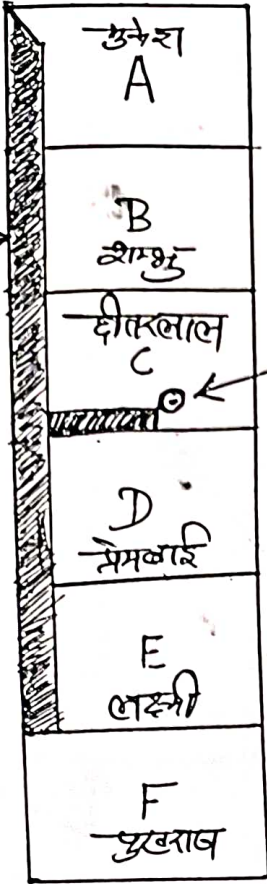 मुकेश
A
B
शम्भु
छीतरलाल
C
D
प्रेमबाई
E
लक्ष्मी
F
पुखराज